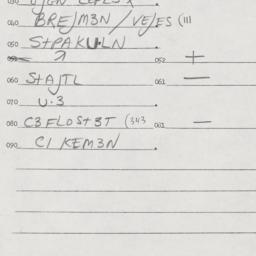 040 BREJM3N / VEJES (III
050 StPAKULN
052 +
060 StAJTL
061 —
070 U.3
080 C3FLOSt3T (343
081 —
090 CI KEM3N